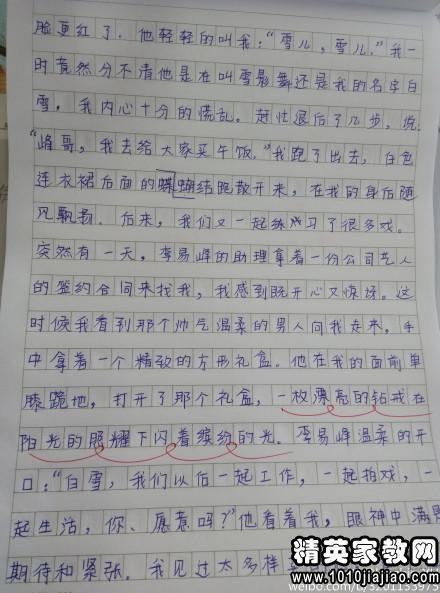 脸更红了。他轻轻的叫我:“雪儿,雪儿。”我一
时竟然分不清他是在叫雪影舞还是我的名字白
雪。我内心十分的慌乱。赶忙退后了几步,说
“峰哥,我去给大家买午饭。”我跑了出去,白色
连衣裙后面的蝶蝴结跑散开来,在我的身后随
风飘扬。后来,我们又一起练习了很多戏。
突然有一天,李易峰的助理拿着一份公司艺人
的签约合同来找我,我感到既开心又惊讶。这
时候我看到那个帅气温柔的男人向我走来,手
中拿着一个精致的方形礼盒。他在我的面前单
膝跪地,打开了那个礼盒,一枚漂亮的钻戒在
阳光的照耀下闪着缤纷的光。李易峰温柔的开
口:“白雪,我们以后一起工作,一起拍戏,一
起生活,你、愿意吗?”他看着我,眼神中满是
期待和紧张。我见过太多样
精英家教网
www.1010jiajiao.com